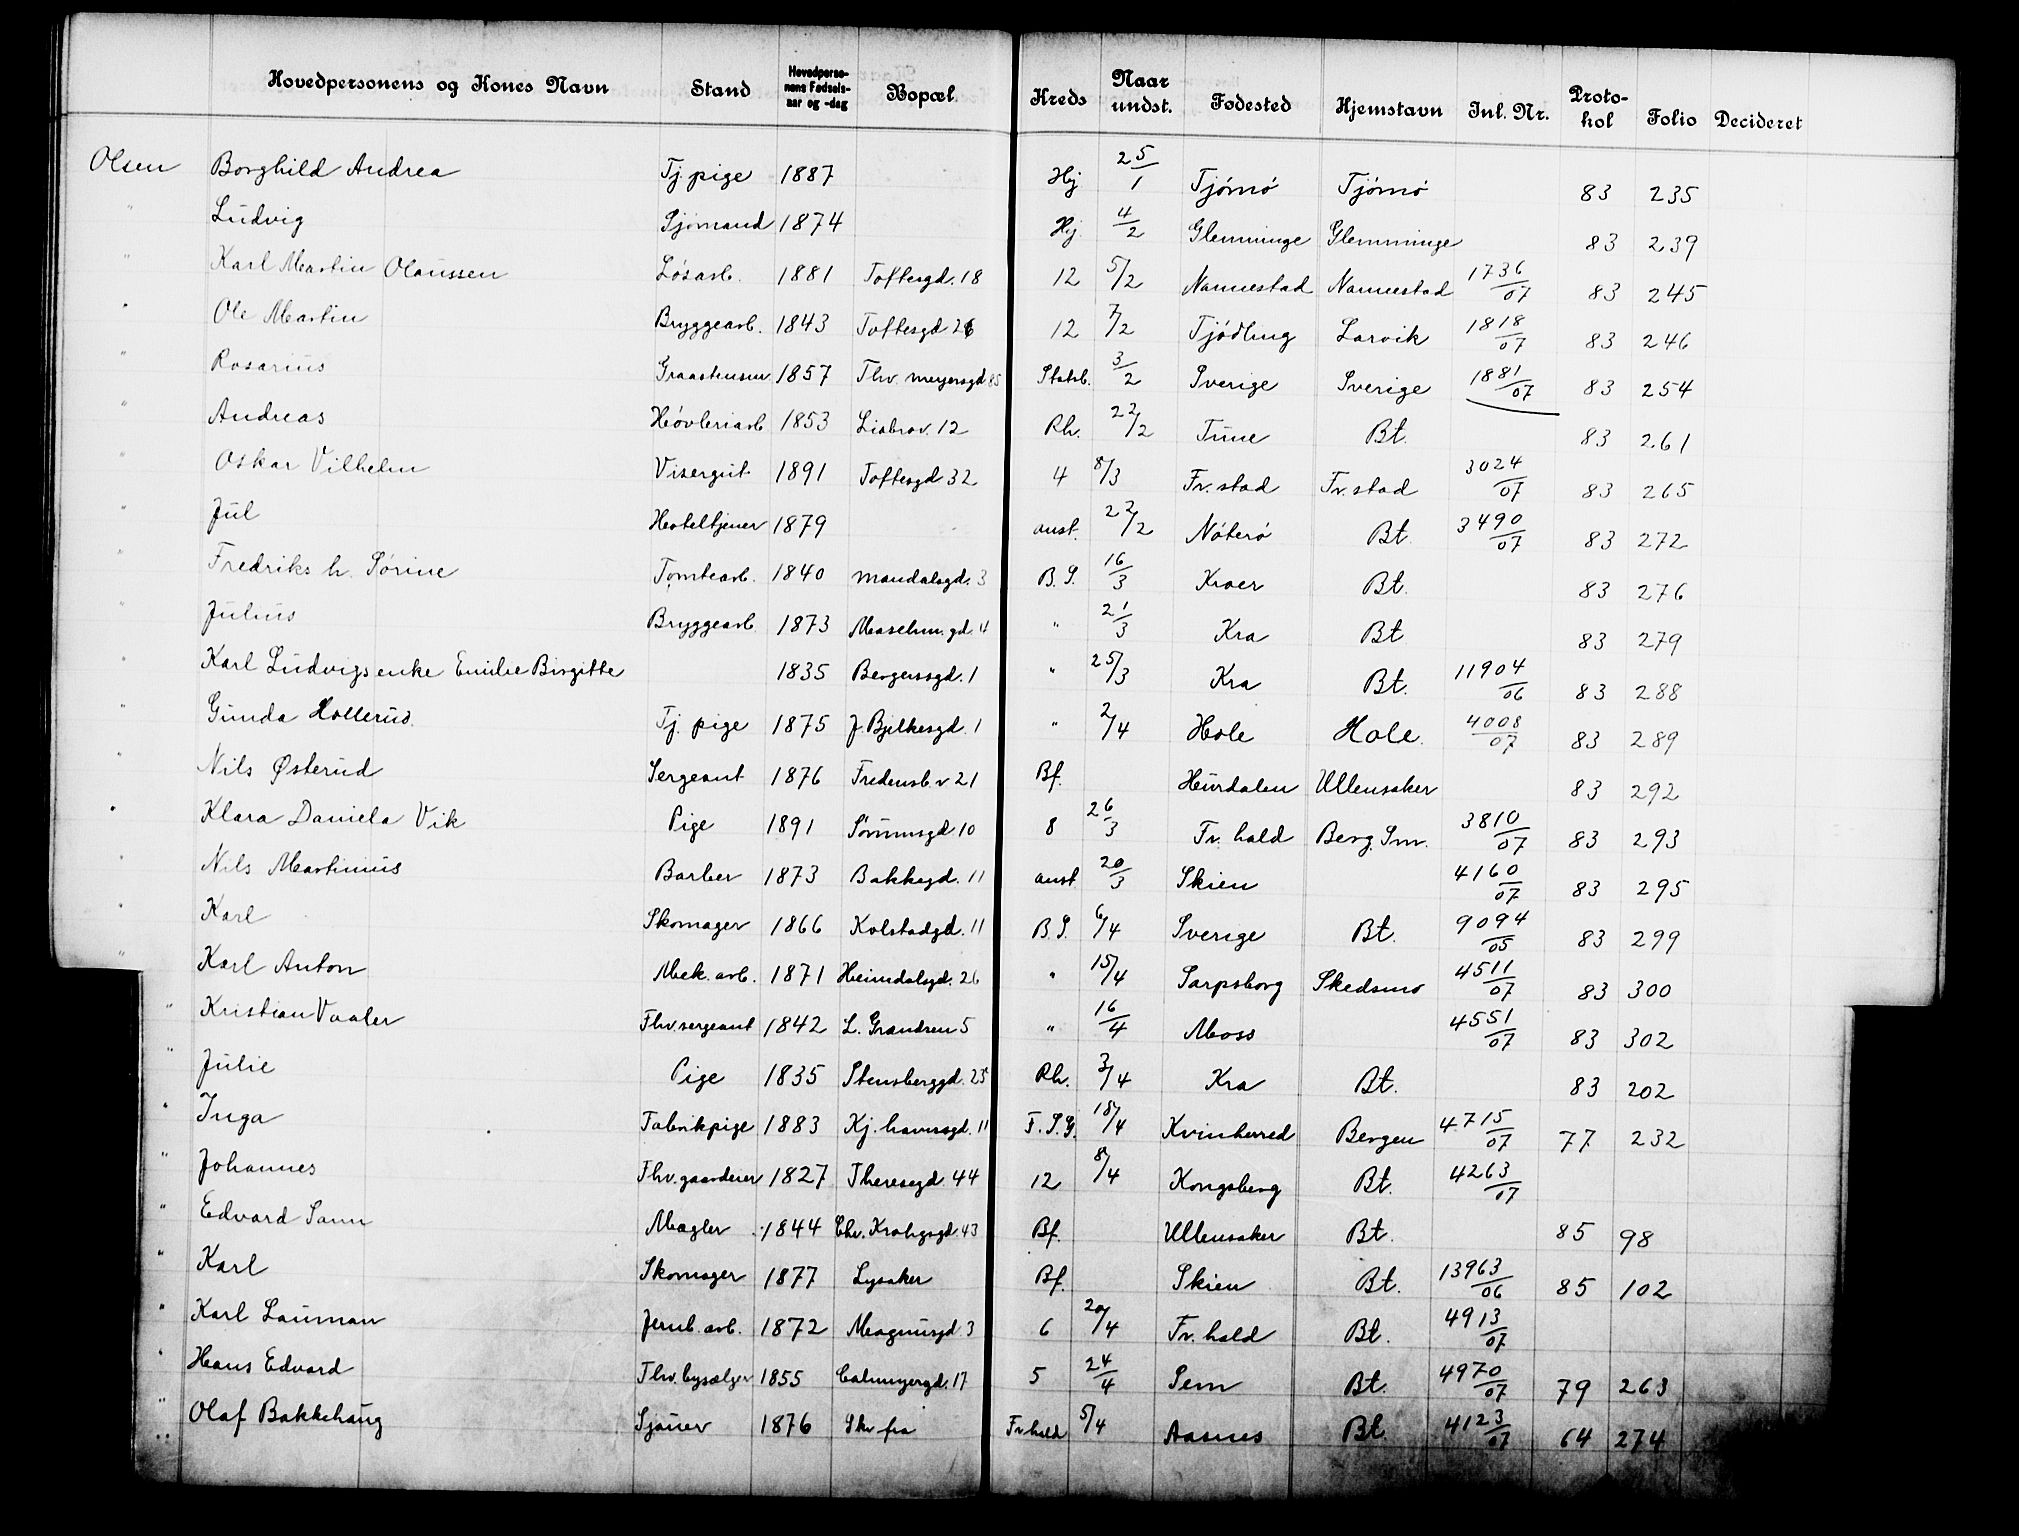 Hovedpersonens og Kones Navn Stand Hovedperso-nens Fødsels-aar og -dag Bopæl Kreds Naar undst. Fødested Hjemstavn Inl. Nr. Proto-kol Folio Decideret
Olsen Borghild Andrea Tj. pige 1887 Hj 25/1 Tjömö Tjömö 83 235
" Ludvig Sjömand 1874 Hj 4/2 Glemminge Glemminge 83 239
" Karl Martin Olaussen Lösarb. 1881 Toftesgd. 18 12 5/2 Nannestad Nannestad 1736/07 83 245
" Ole Martin Bryggearb. 1843 Toftesgd 26 12 7/2 Tjödling Larvik 1818/07 83 246
" Rosarius 1857 Thv. meyersgd 85 Statsb. 3/2 Sverige Sverige 1881/07 83 254
" Andreas Hövleriarb 1853 Liabrov. 12 Rh. 22/2 Tune Bt. 83 261
" Oskar Vilhelm Visergut 1891 Toftesgd 32 4 8/3 Fr. stad Fr. stad 3024/07 83 265
" Jul Hoteltjener 1879 anst. 22/2 Nöterö Bt. 3490/07 83 272
" Fredriks h. Sörine Tomtearb. 1840 mandalsgd. 3 B. S. 16/3 Kroer Bt. 83 276
" Julius Bryggearb 1873 gd. 4 " 21/3 Kra Bt. 83 279
" Karl Ludvigs enke Emilie Birgitte 1835 Bergersgd. 1 " 25/3 Kra Bt. 11904/06 83 288
" Gunda Hollerus. Tj. pige 1875 J. Bjelkesgd. 1 " 2/4 Hole Hole. 4008/07 83 289
" Nils Østerud Sergeant 1876 Fredensb. v 21 Bf. Hurdalen Ullensaker 83 292
" Klara Daniela Vik Pige 1891 Sörumsgd 10 8 26/3 Fr. hald Berg. Sm. 3810/07 83 293
" Nils Martinius Barber 1873 Bakkegd. 11 anst 20/3 Skien 4160/07 83 295
" Karl Skomager 1866 Kolstadgd. 11 B. S. 6/4 Sverige Bt. 9094/05 83 299
" Karl Anton Mek. arb. 1871 Heimdalsgd. 26 " 15/4 Sarpsborg Skedsmo 4511/07 83 300
" Kristian Vaaler Fhv. sergeant 1842 L. Grændsen 5 " 16/4 Moss 4551/07 83 302
" Julie Pige 1835 Stensberggd. 25 Rh. 3/4 Kra Bt. 83 202
" Inga Fabrikpige 1883 Kj. havnsgd. 11 F. S. G. 18/4 Kvinherred Bergen 4715/07 77 232
" Johannes Fhv. gaardeier 1827 Theresegd. 44 12 8/4 Kongsberg Bt. 4263/07
" Edvard Sann Mægler 1844 Chr. Krohgsgd. 43 Bf. Ullensaker Bt. 85 98
" Karl Skomager 1877 Lysaker Bf. Skien Bt. 13963/06 85 102
" Karl Lauman Jernb. arb. 1872 Magnusgd. 3 6 20/4 Fr. hald Bt. 4913/07
" Hans Edvard Fhv. 1855 Calmeyergd. 17 5 24/4 Sem Bt. 4970/07 79 263
" Olaf Bakkehaug Sjauer 1876 Skr fra Fr hald 5/4 Aasnes Bt. 4123/07 64 274